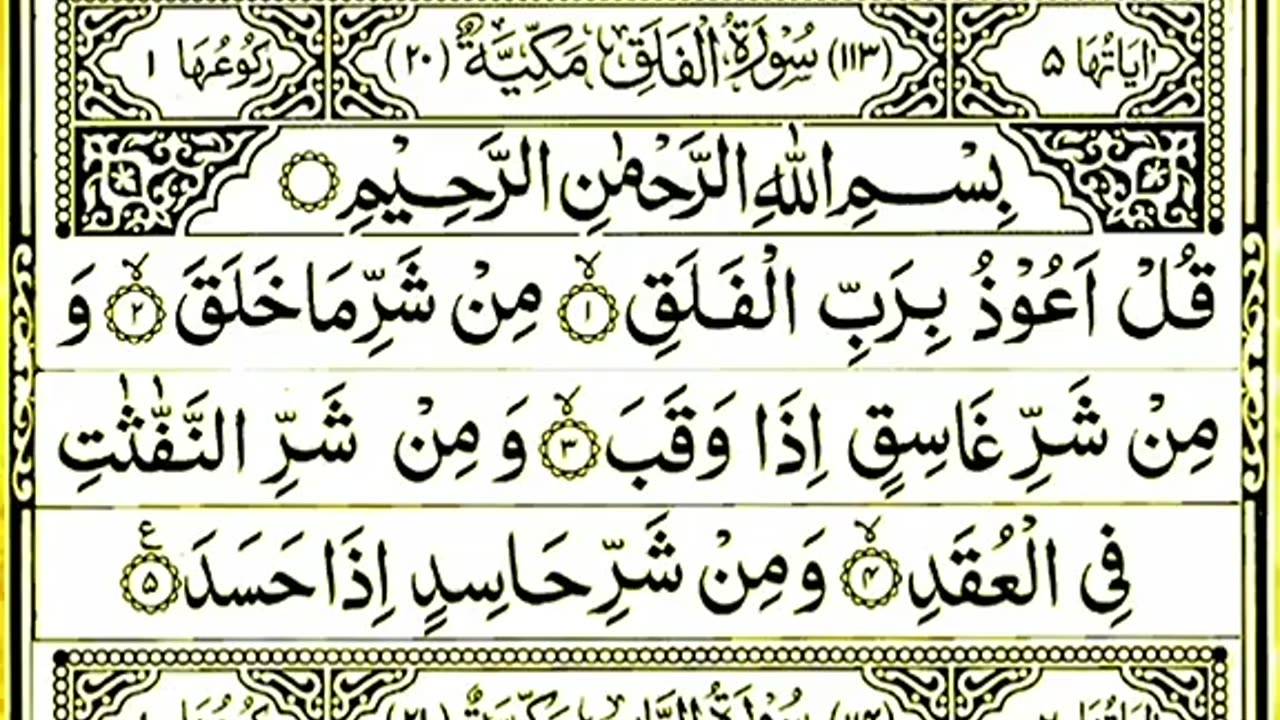 اٰیَاتُهَا ۵ (۱۱۳) سُوْرَةُ الْفَلَقِ مَكِّیَّةٌ (۲۰) رُكُوْعُهَا ۱
بِسْمِ اللّٰهِ الرَّحْمٰنِ الرَّحِیْمِ
قُلْ اَعُوْذُ بِرَبِّ الْفَلَقِ ۙ‏﴿۱﴾ مِنْ شَرِّ مَا خَلَقَ ۙ‏﴿۲﴾ وَ
مِنْ شَرِّ غَاسِقٍ اِذَا وَقَبَ ۙ‏﴿۳﴾ وَ مِنْ شَرِّ النَّفّٰثٰتِ
فِی الْعُقَدِ ۙ‏﴿۴﴾ وَ مِنْ شَرِّ حَاسِدٍ اِذَا حَسَدَ ﴿۵﴾ ع